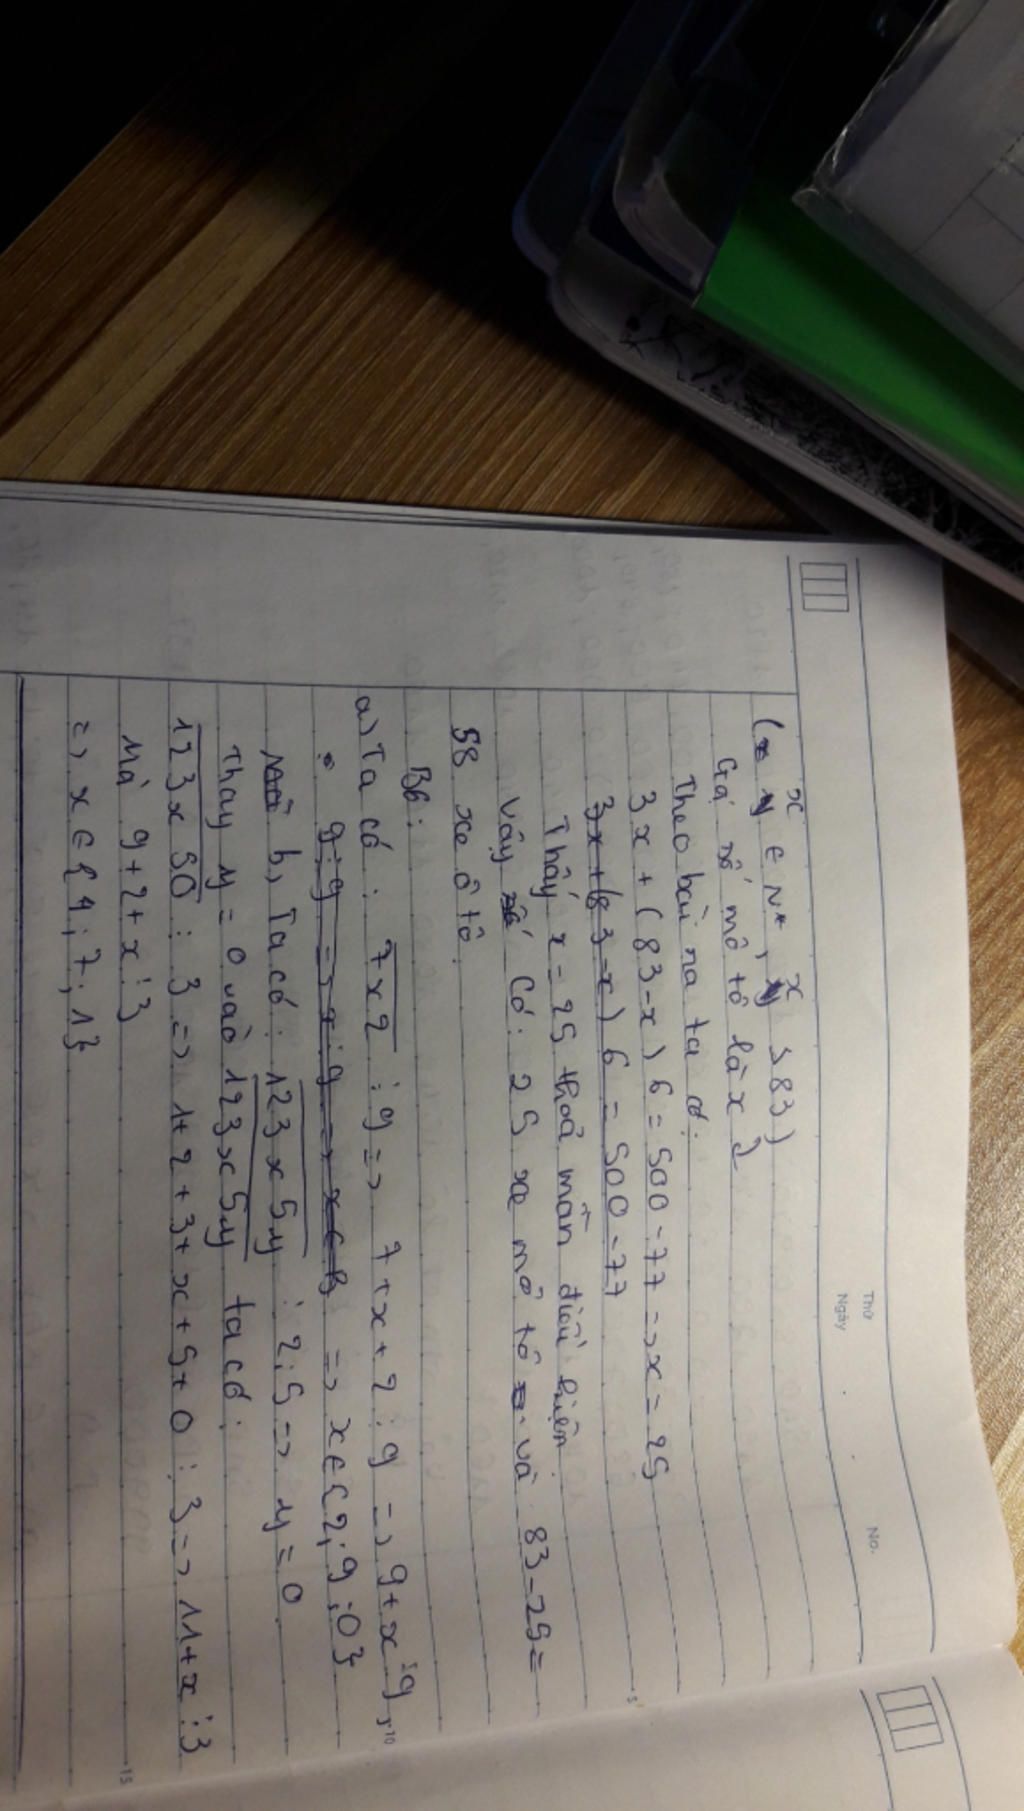 Thứ
Ngày
No.
x x
( ∈ N*, ≤ 83)
Gọi số mô tô là x
Theo bài ra ta có:
3x + (83-x) 6 = 500 - 77 => x = 25
3x + (83-x) 6 = 500 - 77
Thấy x = 25 thoả mãn điều kiện.
Vậy Có: 25 xe mô tô và 83-25=
58 xe ô tô.
B6:
a) Ta có: 7x2 ⋮ 9 => 7+x+2 ⋮ 9 => 9+x ⋮ 9
9 ⋮ 9 => x ⋮ 9 => x ∈ => x ∈ {2; 9; 0}
b, Ta có: 123x5y ⋮ 2; 5 => y = 0
Thay y = 0 vào 123x5y ta có:
123x50 ⋮ 3 => 1+2+3+x+5+0 ⋮ 3 => 11+x ⋮ 3
Mà 9+2+x ⋮ 3
=> x ∈ {4; 7; 1}
5
10
15